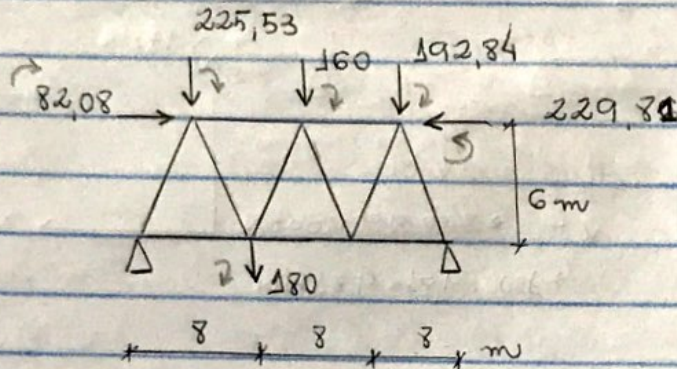 225,53
160
192,84
82,08
229,81
6 m
180
8
8
8
m